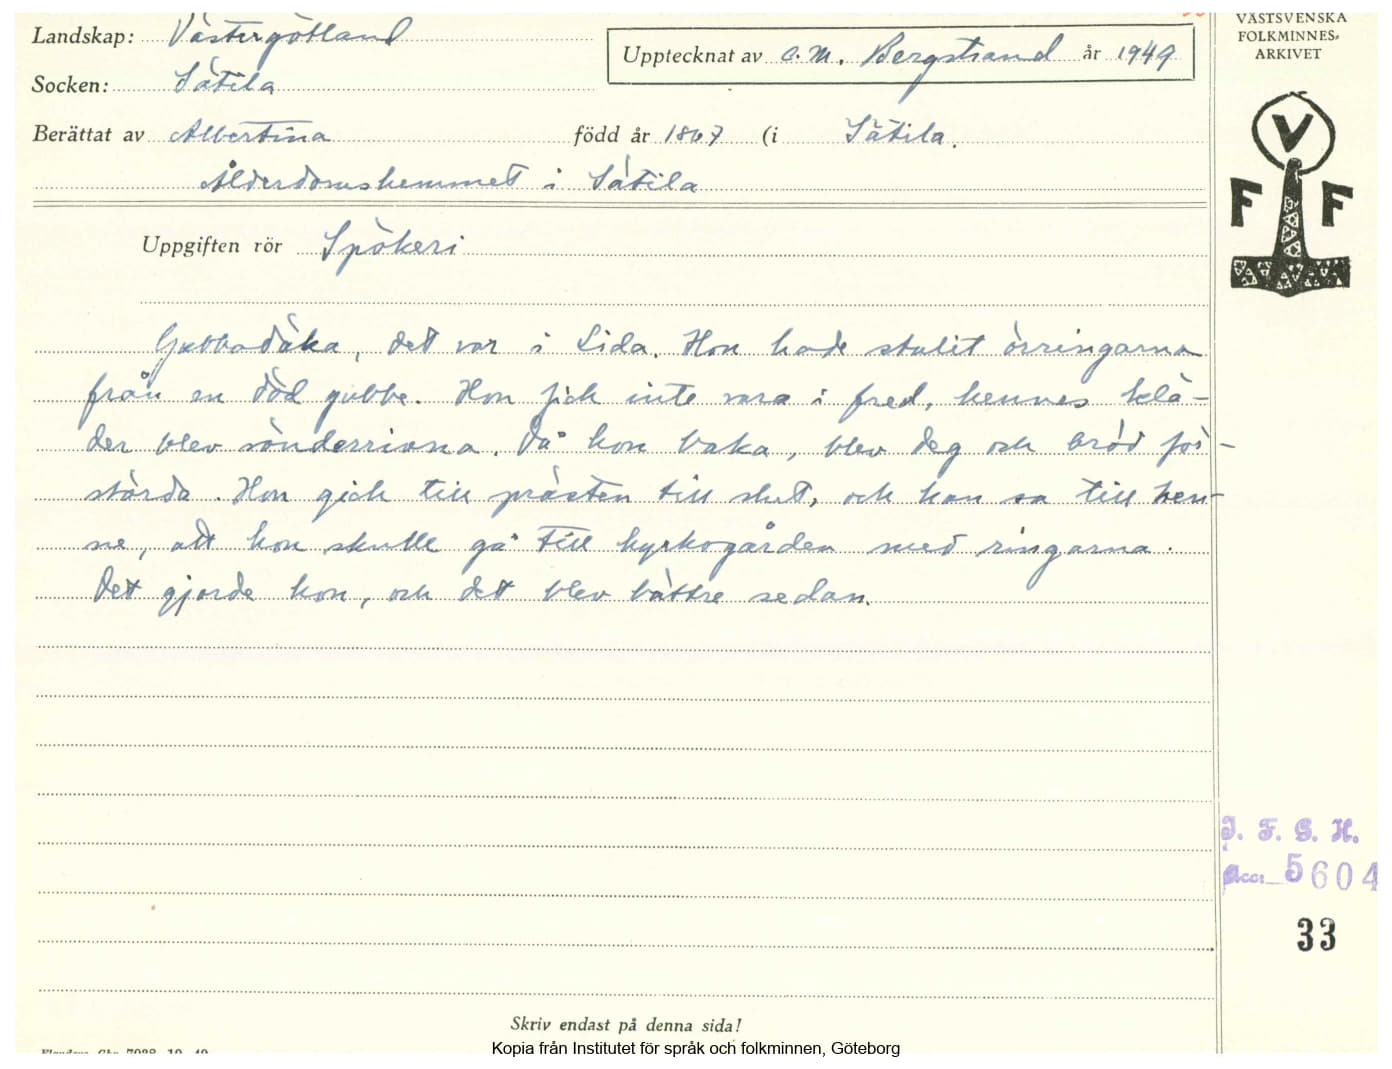 Landskap: Västergötland
Socken: Sätila
Upptecknat av C. M. Bergstrand år 1949
Berättat av Albertina född år 1867 (i Sätila.
Ålderdomshemmet i Sätila
Uppgiften rör Spökeri
Gubbadäka, det var i Lida. Hon hade stulit örringarna
från en död gubbe. Hon fick inte vara i fred, hennes klä-
der blev sönderrivna. Då hon baka, blev deg och bröd för-
störda. Hon gick till prästen till slut, och han sa till hen-
ne, att hon skulle gå till kyrkogården med ringarna.
Det gjorde hon, och det blev bättre sedan.
VÄSTSVENSKA
FOLKMINNES-
ARKIVET
V
F F
I. F. G. H.
Acc: 5604
33
Skriv endast på denna sida!
Kopia från Institutet för språk och folkminnen, Göteborg